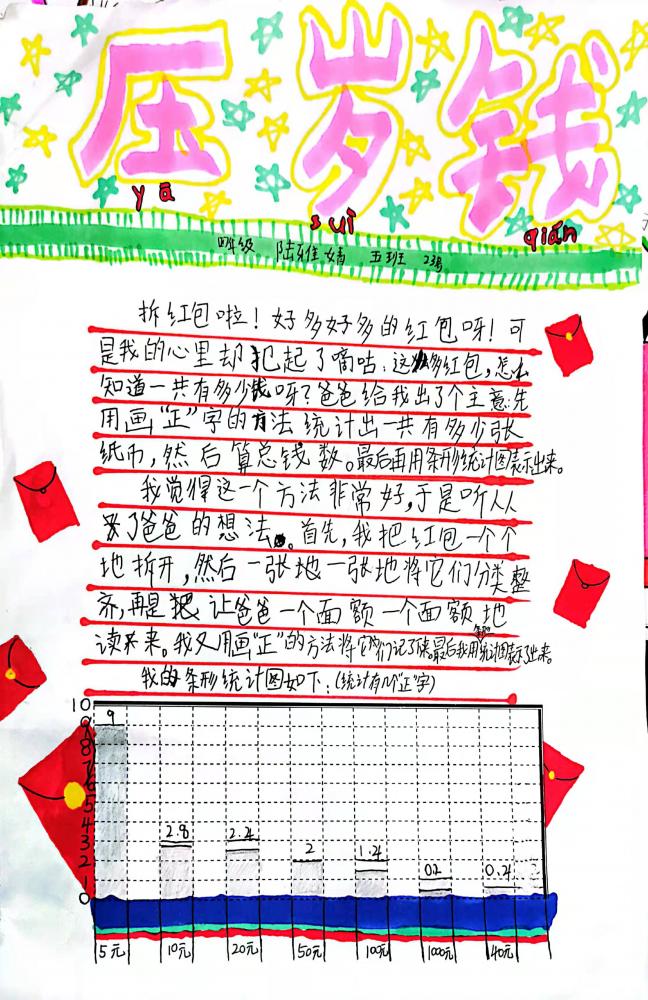 压岁钱
yā
suì
qián
四年级 陆雅婧 五班 23号
拆红包啦！好多好多的红包呀！可
是我的心里却犯起了嘀咕：这多红包，怎么
知道一共有多少钱呀？爸爸给我出了个主意：先
用画“正”字的方法统计出一共有多少张
纸币，然后算总钱数。最后再用条形统计图表示出来。
我觉得这一个方法非常好，于是听从
了爸爸的想法。首先，我把红包一个个
地拆开，然后一张地一张地将它们分类整
齐，再是把让爸爸一个面额一个面额地
读来。我又用画“正”的方法将它们记了候。最后我用统计图表示了出来。
我的条形统计图如下：(统计有几个“正”字)
10
9
8
7
6
5
4
3
2
1
0
9
2.8
2.4
2
1.4
0.2
0.4
5元 10元 20元 50元 100元 1000元 40元